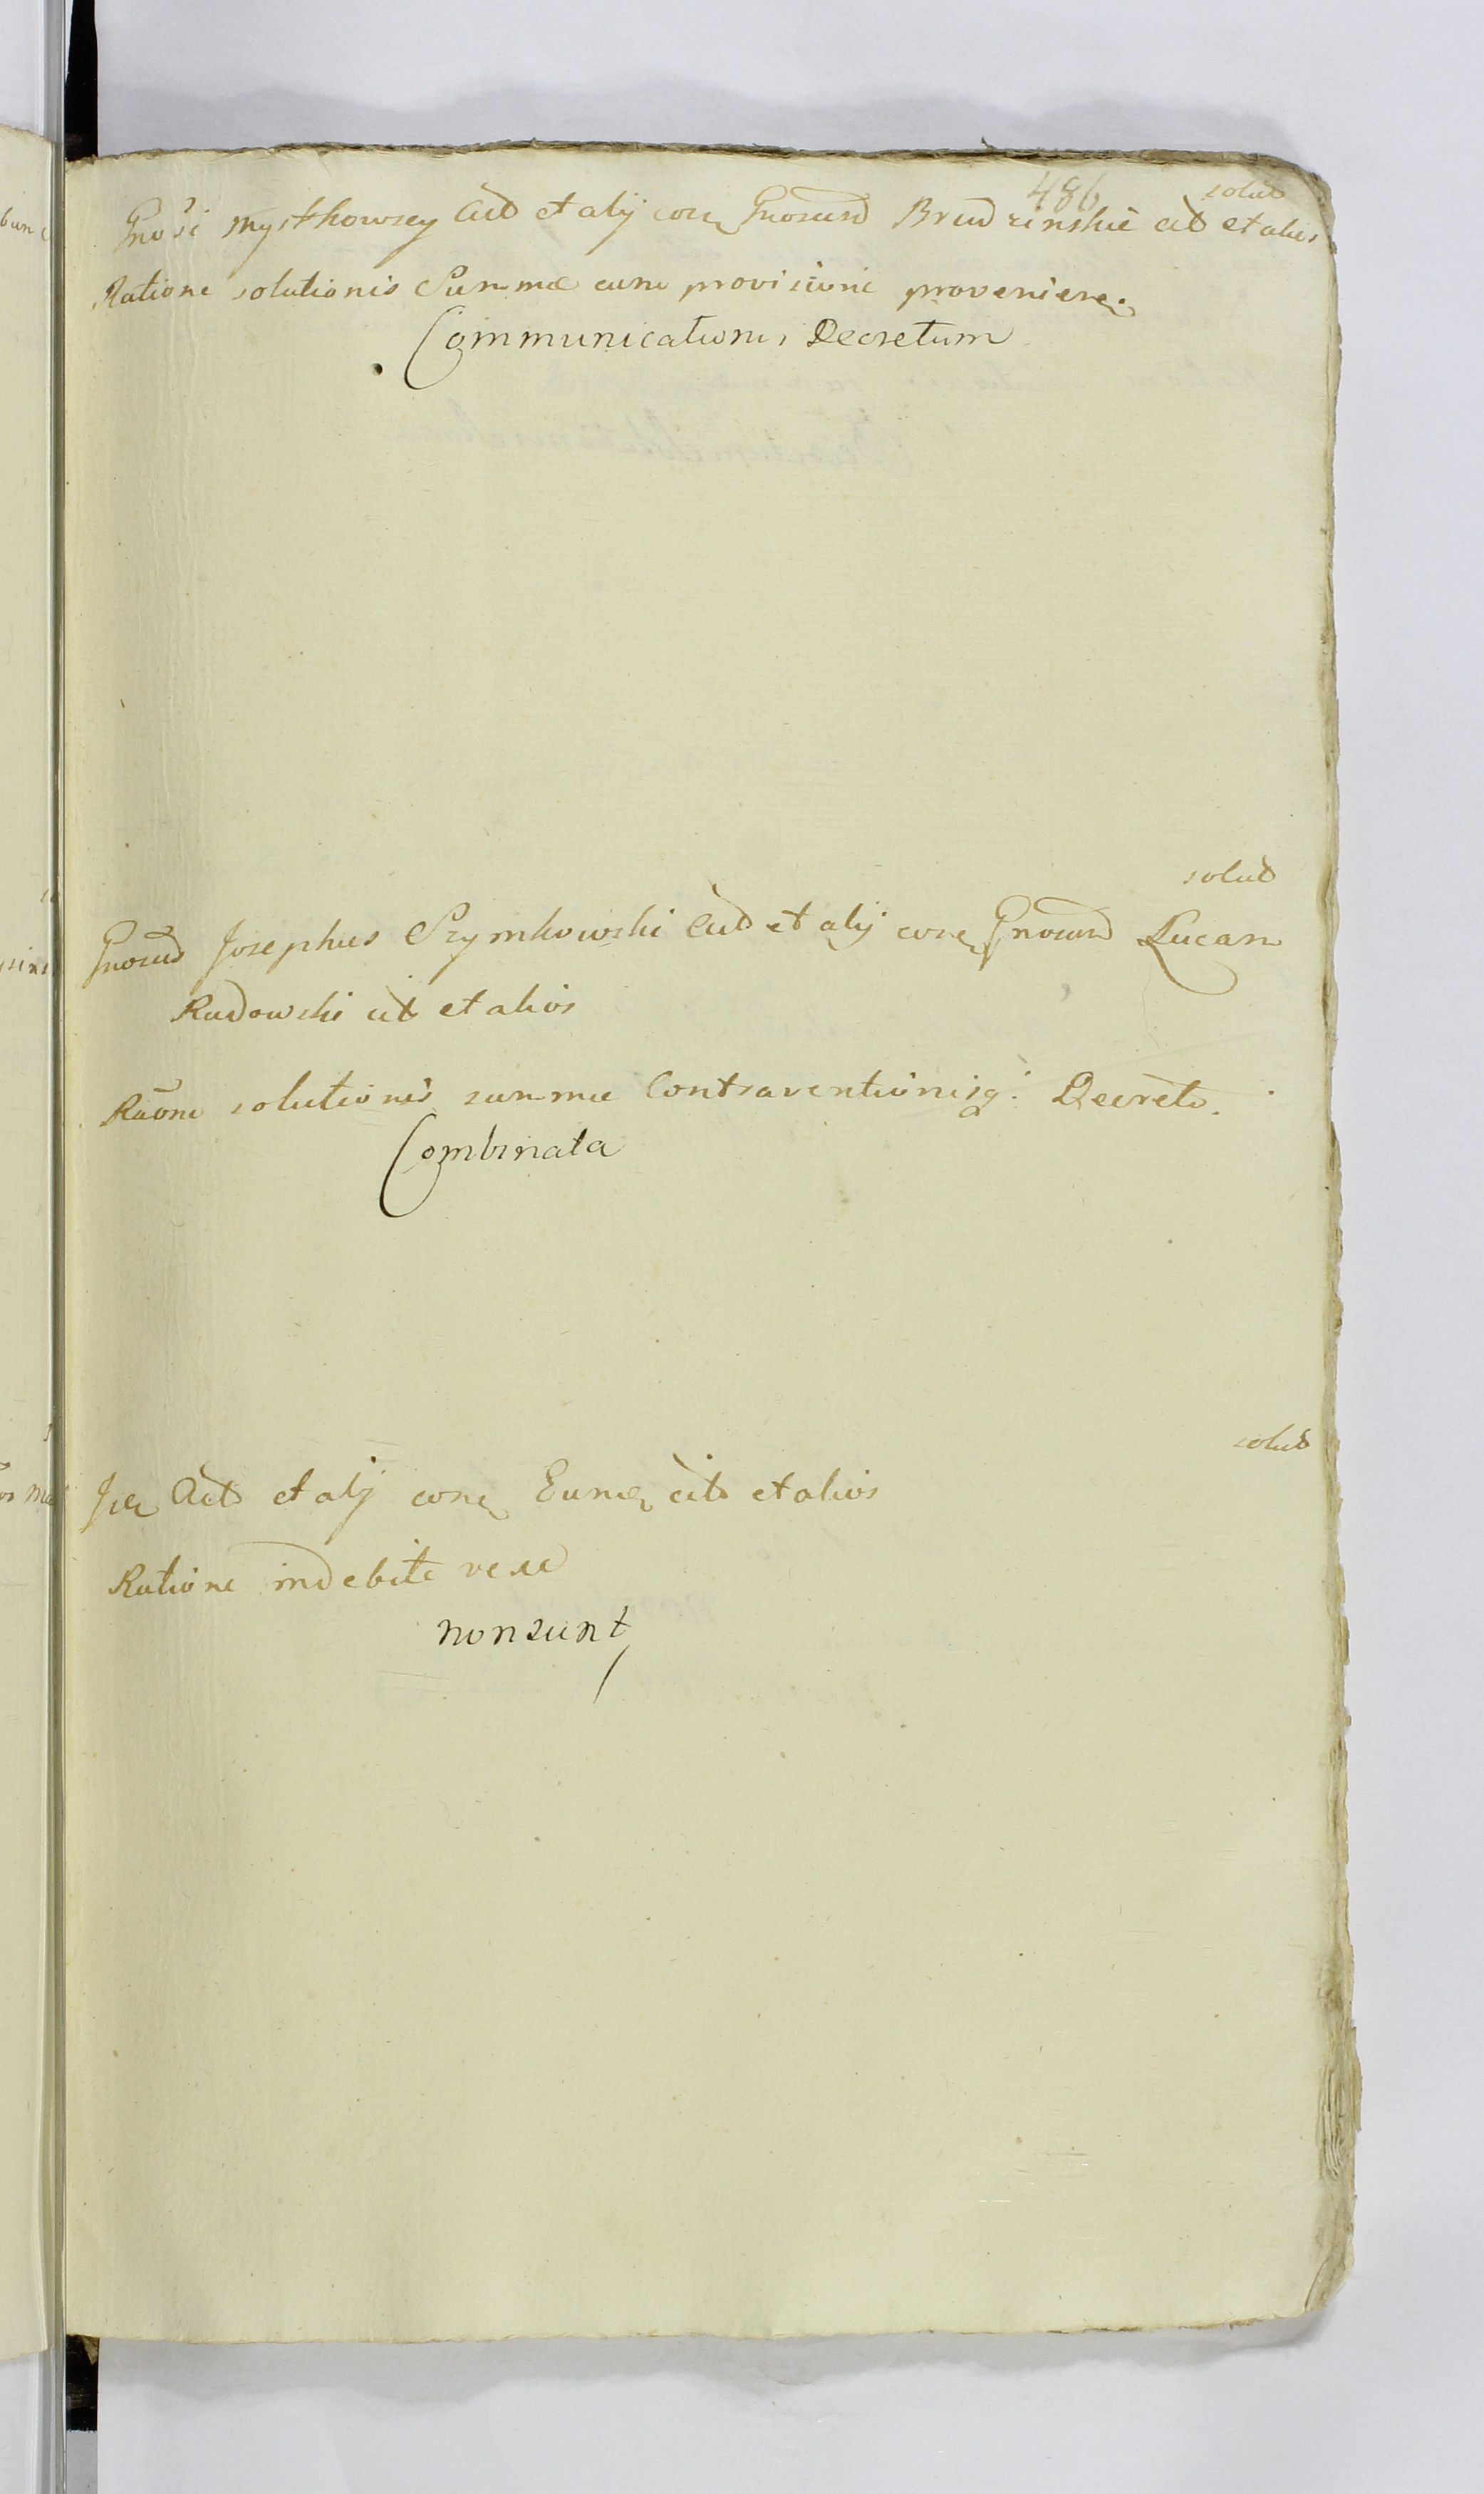 486
solut
Gnosi Mystkowscy Act et alij con Gnosum Brudzinski cit et alios
Ratione solutionis Summæ cum provisione provenien
Communicationis Decretum
solut
Gnosus Josephus Szymkowski Act et alij con Gnosum Lucam
Radowski cit et alios
Raõne solutionis summæ Contraventionisq: Decreto.
Combinata
solut
Act et alij con Eund cit et alios
Ratione indebite
non sunt